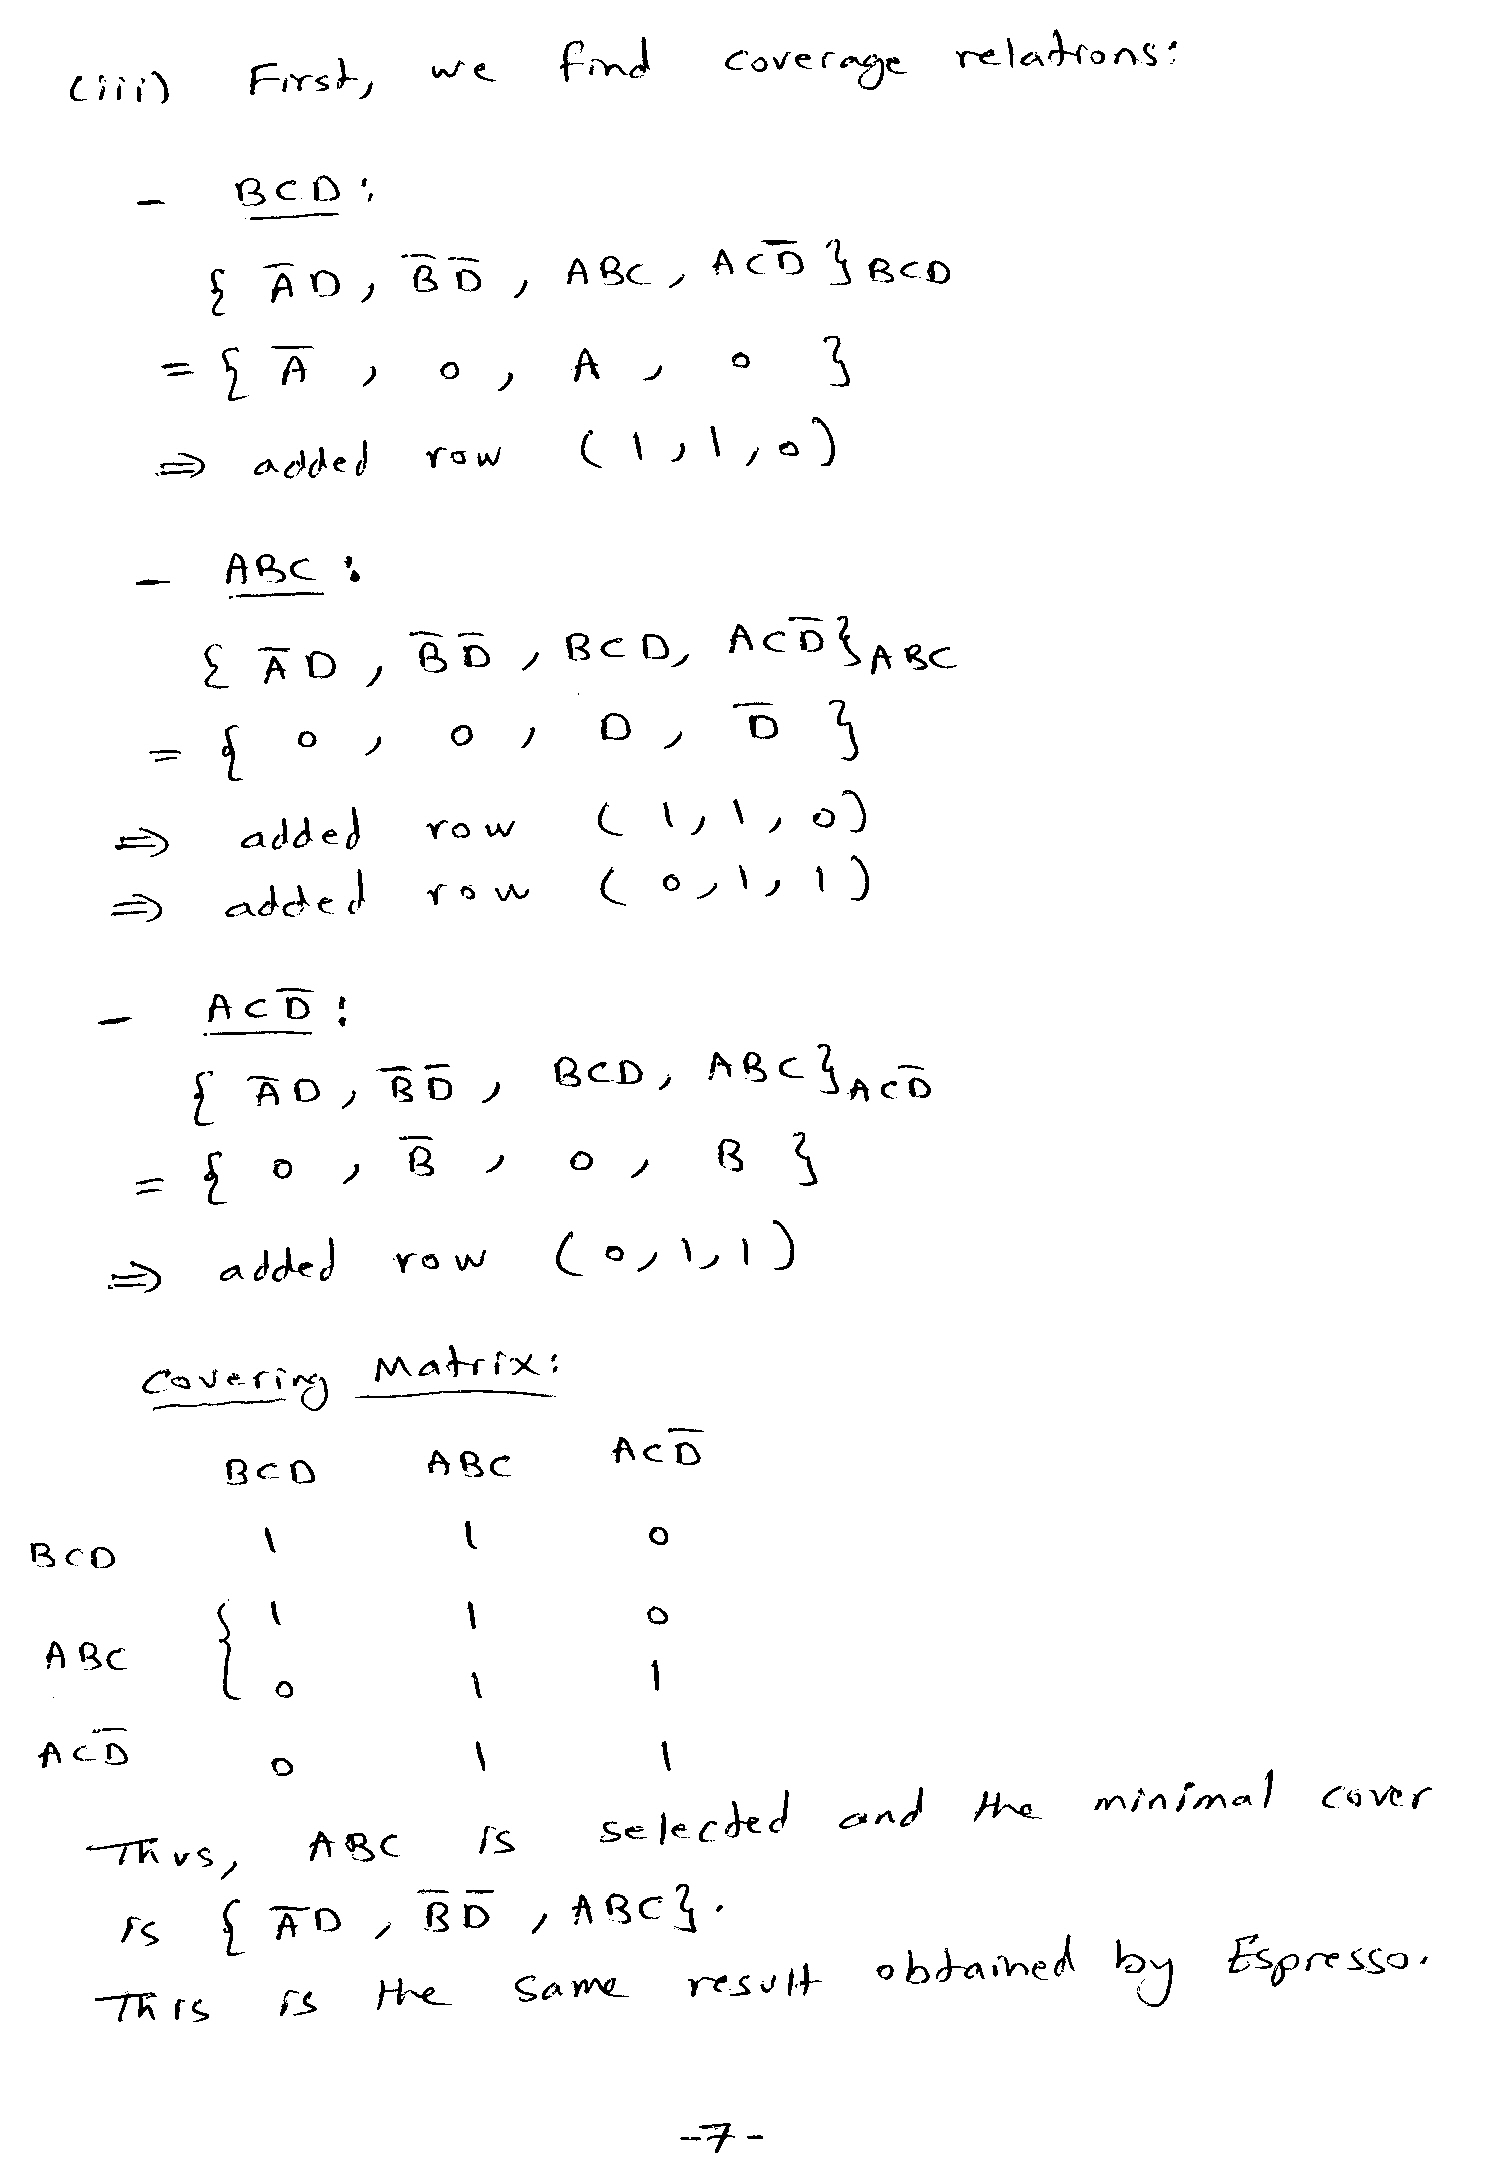 (iii) First, we find coverage relations:
- BCD:
{ A̅D, B̅D̅, ABC, ACD̅ }BCD
= { A̅, 0, A, 0 }
⇒ added row (1,1,0)
- ABC:
{ A̅D, B̅D̅, BCD, ACD̅ }ABC
= { 0, 0, D, D̅ }
⇒ added row (1,1,0)
⇒ added row (0,1,1)
- ACD̅:
{ A̅D, B̅D̅, BCD, ABC }ACD̅
= { 0, B̅, 0, B }
⇒ added row (0,1,1)
Covering Matrix:
BCD ABC ACD̅
BCD 1 1 0
ABC { 1 1 0
0 1 1
ACD̅ 0 1 1
Thus, ABC is selected and the minimal cover
is { A̅D, B̅D̅, ABC }.
This is the same result obtained by Espresso.
-7-